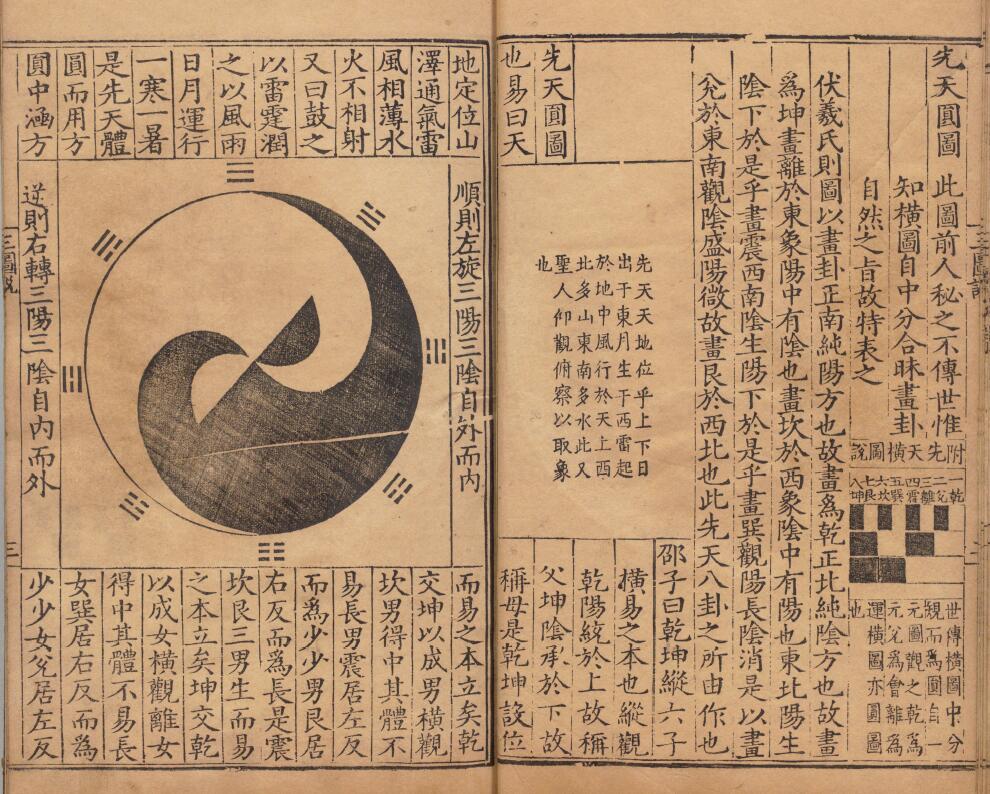 先天圓圖 此圖前人秘之不傳世惟
知橫圖自中分合昧畫卦
自然之旨故特表之
附先天橫圖說
一乾
二兌
三離
四震
五巽
六坎
七艮
八坤
世傳橫圖中分
規而為圓自一
元圖觀之乾為
元兌為會離為
運橫圖亦圓圖
也
伏羲氏則圖以畫卦正南純陽方也故畫為乾正北純陰方也故畫
為坤畫離於東象陽中有陰也畫坎於西象陰中有陽也東北陽生
陰下於是乎畫震西南陰生陽下於是乎畫巽觀陽長陰消是以畫
兌於東南觀陰盛陽微故畫艮於西北也此先天八卦之所由作也
先天圓圖
也易曰天
先天天地位乎上下日
出于東月生于西雷起
於地中風行於天上西
北多山東南多水此又
聖人仰觀俯察以取象
也
邵子曰乾坤縱六子
橫易之本也縱觀
乾陽統於上故稱
父坤陰承於下故
稱母是乾坤設位
地定位山
澤通氣雷
風相薄水
火不相射
又曰鼓之
以雷霆潤
之以風雨
日月運行
一寒一暑
是先天體
圓而用方
圓中涵方
順則左旋三陽三陰自外而內
逆則右轉三陽三陰自內而外
而易之本立矣乾
交坤以成男橫觀
坎男得中其體不
易長男震居左反
而為少少男艮居
右反而為長是震
坎艮三男生而易
之本立矣坤交乾
以成女橫觀離女
得中其體不易長
女巽居右反而為
少少女兌居左反
三圖說
三